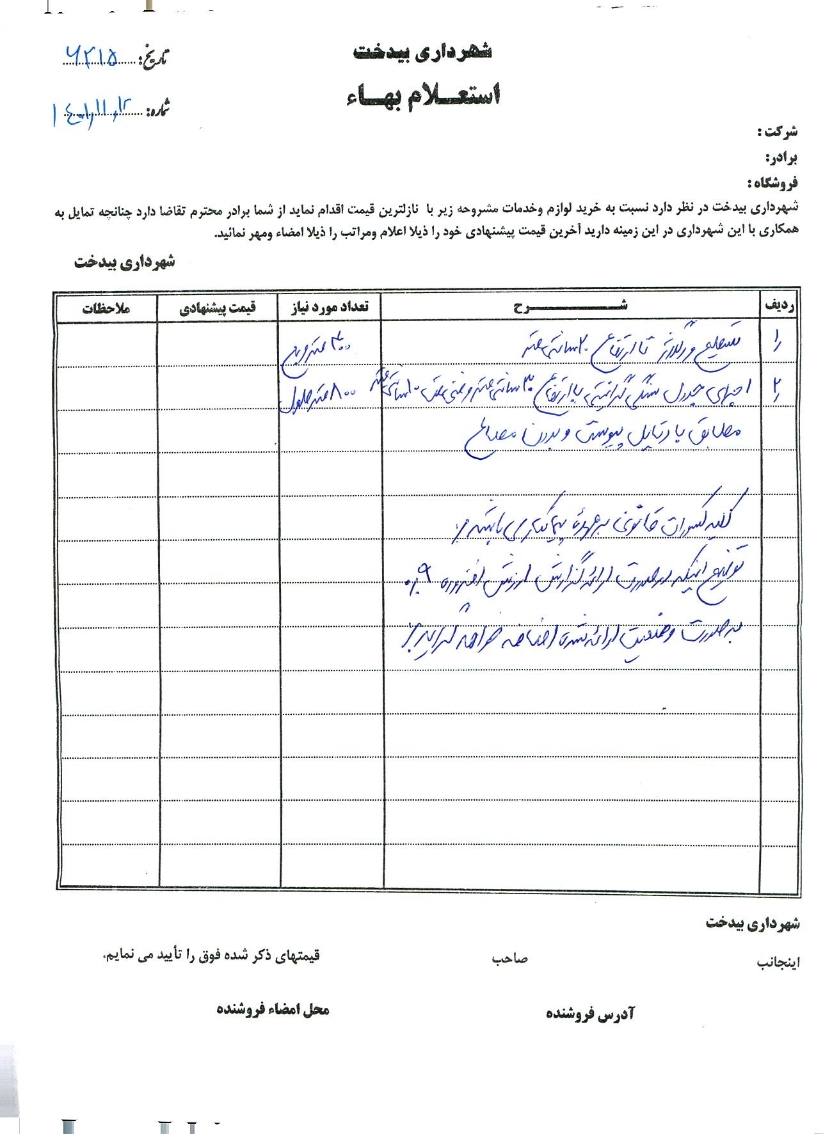 شهرداری بیدخت
تاریخ: ۶۲۱۵
استعــلام بهــاء
شماره: ۱۴۰۱,۱۱,۱۲
شرکت :
برادر:
فروشگاه :
شهرداری بیدخت در نظر دارد نسبت به خرید لوازم وخدمات مشروحه زیر با نازلترین قیمت اقدام نماید از شما برادر محترم تقاضا دارد چنانچه تمایل به
همکاری با این شهرداری در این زمینه دارید آخرین قیمت پیشنهادی خود را ذیلا اعلام ومراتب را ذیلا امضاء ومهر نمائید.
شهرداری بیدخت
ردیف شــــــرح تعداد مورد نیاز قیمت پیشنهادی ملاحظات
۱ تسطیح و رگلاژ تا ارتفاع ۲۰ سانتی متر
۲ اجرای جدول سنگی گرانیتی با ارتفاع ۳۰ سانتی متر و ضخامت ۱۰ سانتی متر ۸۰۰ متر طول
مطابق با دتایل پیوست و بدون مصالح
کلیه کسورات قانونی بر عهده پیمانکار می باشد
توضیح اینکه در صورت ارائه گزارش ارزش افزوده ۹٪
به صورت وضعیت ارائه شده اضافه خواهد گردید
شهرداری بیدخت
اینجانب صاحب قیمتهای ذکر شده فوق را تأیید می نمایم.
آدرس فروشنده محل امضاء فروشنده